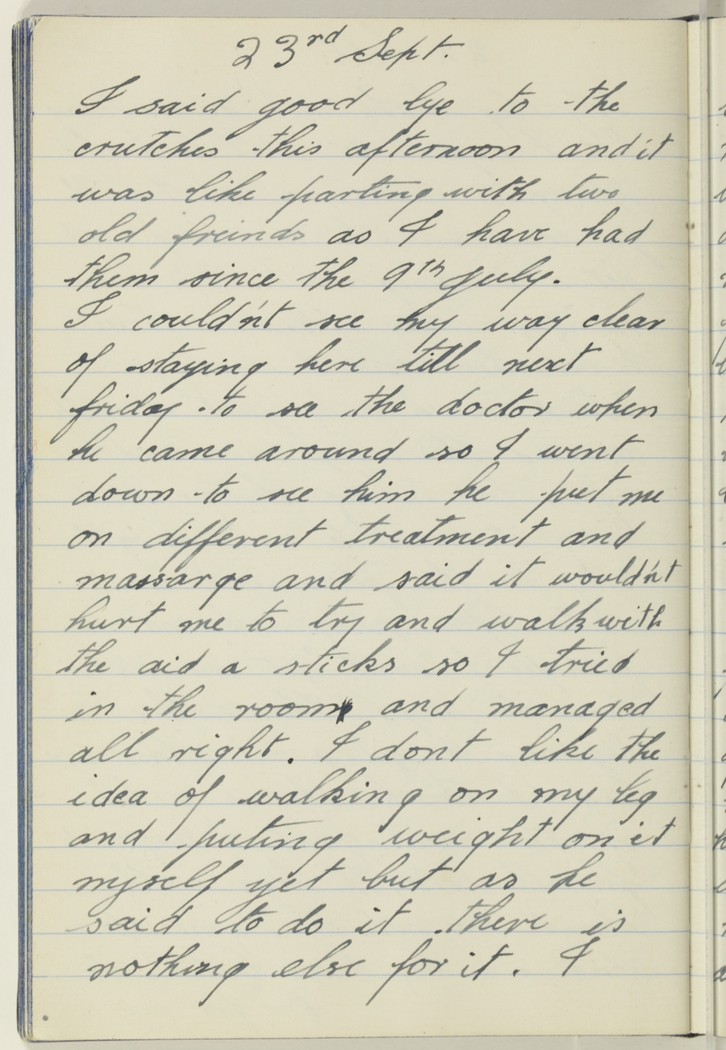 23rd Sept.
I said good bye to the
crutches this afternoon and it
was like parting with two
old freinds as I have had
them since the 9th July.
I could'nt see my way clear
of staying here till next
friday to see the doctor when
he came around so I went
down to see him he put me
on different treatment and
massarge and said it would'nt
hurt me to try and walk with
the aid a sticks so I tried
in the room and managed
all right. I dont like the
idea of walking on my leg
and puting weight on it
myself yet but as he
said to do it there is
nothing else for it. I